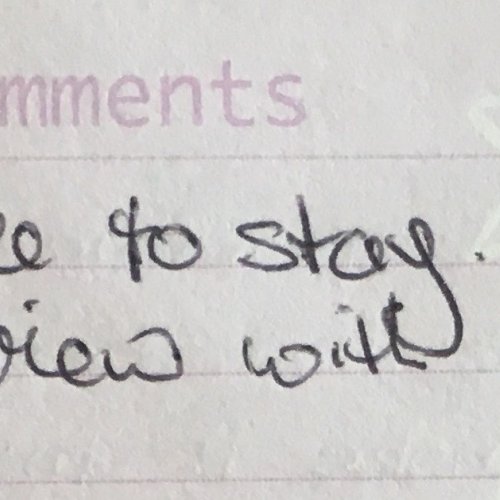 mments
to stay.
view with